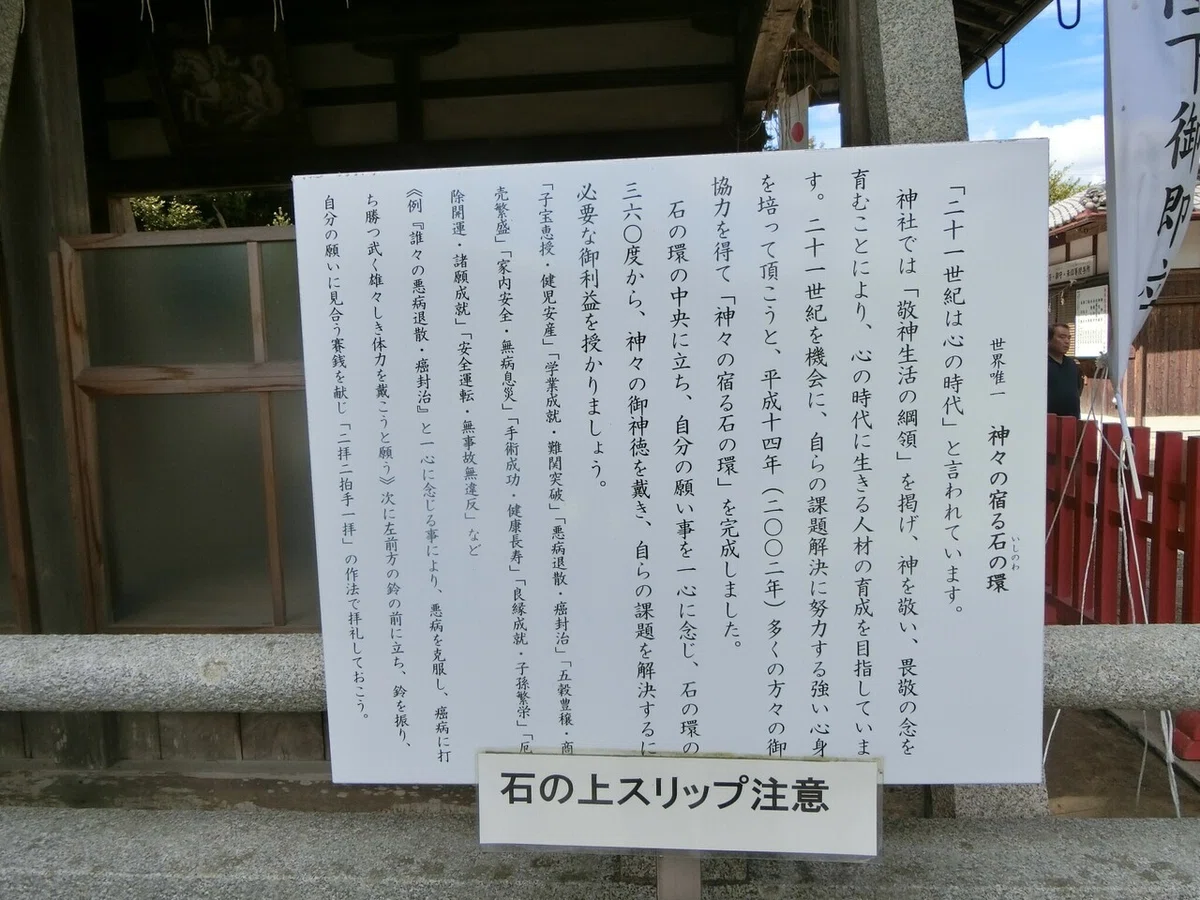 世界唯一 神々の宿る石の環
いしのわ
「二十一世紀は心の時代」と言われています。
神社では「敬神生活の綱領」を掲げ、神を敬い、畏敬の念を
育むことにより、心の時代に生きる人材の育成を目指していま
す。二十一世紀を機会に、自らの課題解決に努力する強い心身
を培って頂こうと、平成十四年（二〇〇二年）多くの方々の御
協力を得て「神々の宿る石の環」を完成しました。
石の環の中央に立ち、自分の願い事を一心に念じ、石の環の
三六〇度から、神々の御神徳を戴き、自らの課題を解決するに
必要な御利益を授かりましょう。
「子宝恵授・健児安産」「学業成就・難関突破」「悪病退散・癌封治」「五穀豊穣・商
売繁盛」「家内安全・無病息災」「手術成功・健康長寿」「良縁成就・子孫繁栄」「厄
除開運・諸願成就」「安全運転・無事故無違反」など
《例『誰々の悪病退散・癌封治』と一心に念じる事により、悪病を克服し、癌病に打
ち勝つ武く雄々しき体力を戴こうと願う》次に左前方の鈴の前に立ち、鈴を振り、
自分の願いに見合う賽銭を献じ「二拝二拍手一拝」の作法で拝礼しておこう。
石の上スリップ注意
下御即